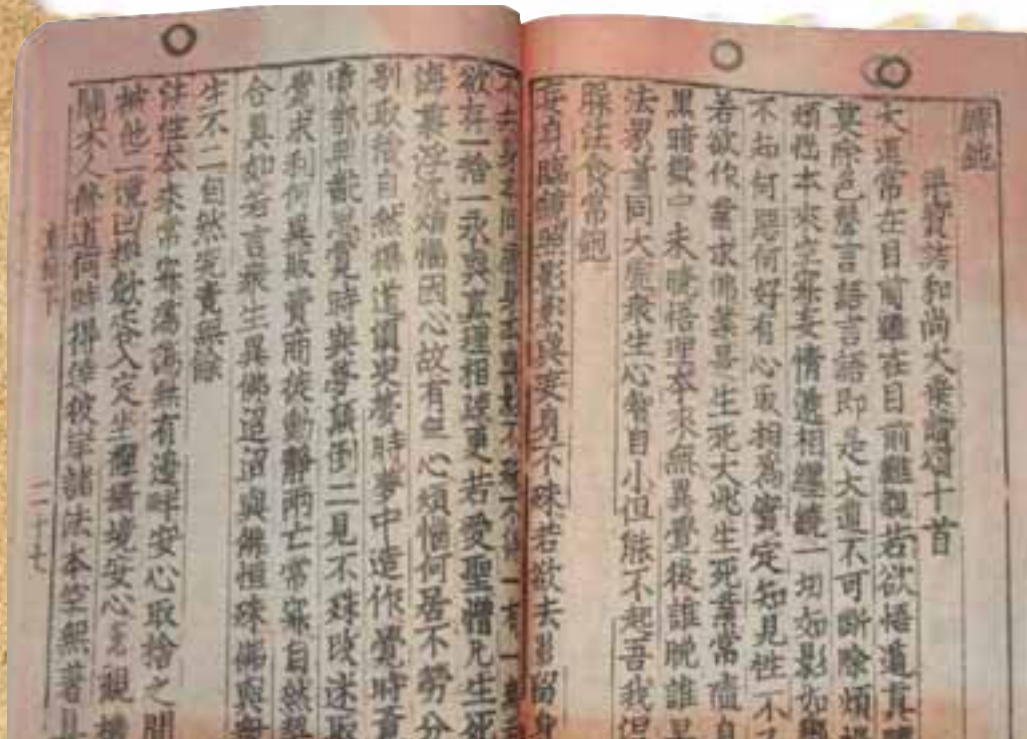 梁寶誌和尚大乘讚頌十首
大道常在目前雖在目前難覩若欲悟道真體
莫除色聲言語言語即是大道不可斷除煩惱
煩惱本來空寂妄情遞相纏繞一切如影如響
不知何惡何好有心取相爲實定知見性不了
若欲作業求佛業是生死大兆生死業常隨身
黑暗獄中未曉悟理本來無異覺後誰晚誰早
法界量同大虛衆生心智自小但能不起吾我涅
法食常飽
妄身臨鏡照影影與妄身不殊若欲去影留身
不一有一
欲存一捨一永與真理相踈更若愛聖憎凡生死
海裏浮沉煩惱因心故有無心煩惱何居不勞分
別取相自然得道須臾夢時夢中造作覺時
都無覺時與夢顛倒二見不殊改迷取
覺求利何異販賣商徒動靜兩亡常寂自然契
合真如若言衆生異佛迢迢與佛恒殊佛與
生不二自然究竟無餘
法性本來常寂蕩蕩無有邊畔安心取捨之間
被他二境迴換斂容入定坐禪攝境安心覺觀機
關木人修道何時得達彼岸諸法本空無著
二十七